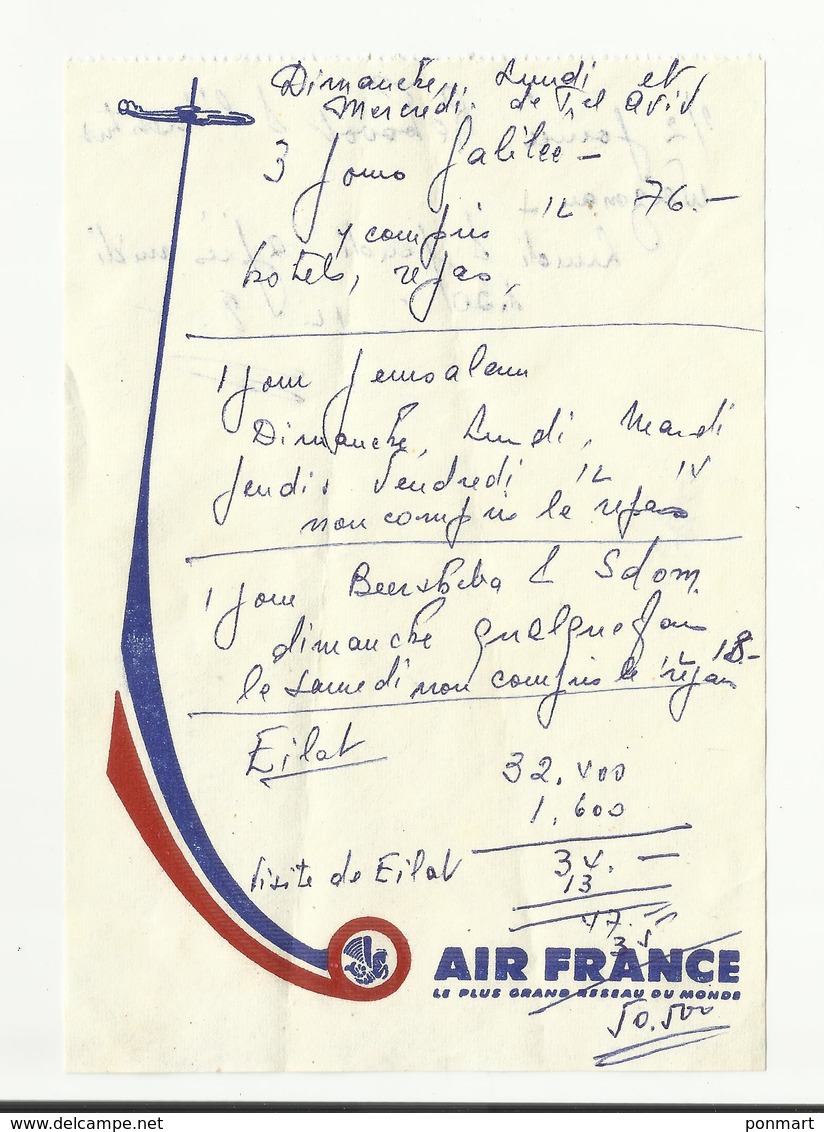 Dimanche, Lundi et
Mercredi de Tel Aviv
3 jours Galilée -
IL 76.-
y compris
hotels, repas,
1 jour Jerusalem
Dimanche, Lundi, Mardi
Jeudi, Vendredi IL 14
non compris le repas
1 jour Beersheba & Sdom
dimanche quelquefois
IL 18.-
le samedi non compris le repas
Eilat
32.400
1.600
visite de Eilat 34.-
13
47.=
3 5
AIR FRANCE
LE PLUS GRAND RESEAU DU MONDE
50.500
ponmart